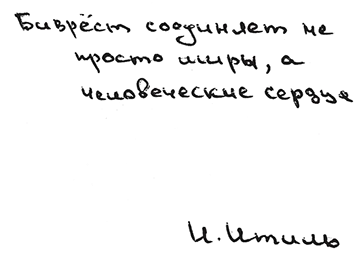 Биврёст соединяет не
просто миры, а
человеческие сердца
И. Итиль